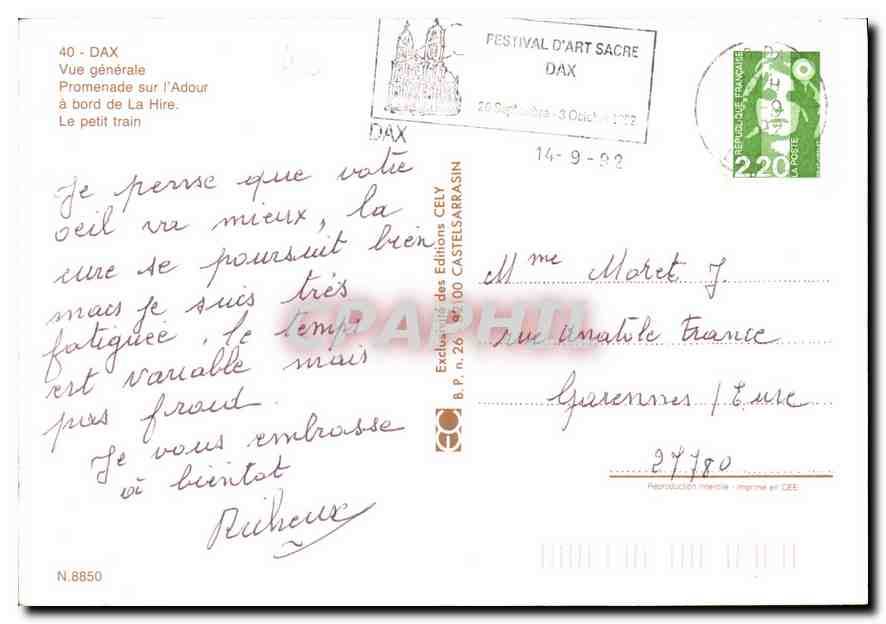 40 - DAX
Vue générale
Promenade sur l'Adour
à bord de La Hire.
Le petit train
Je pense que votre
oeil va mieux, la
cure se poursuit bien
mais je suis très
fatiguée, le temps
est variable mais
pas froid.
Je vous embrasse
à bientot
N.8850
Exclusivité des Editions CELY
B.P. n. 26 - 82100 CASTELSARRASIN
CPAPHIL
DAX
FESTIVAL D'ART SACRE
DAX
26 Septembre - 3 Octobre 1992
14-9-92
REPUBLIQUE FRANÇAISE
2,20
LA POSTE
Mme Moret J.
rue Anatole France
Garennes / Eure
27780
Reproduction interdite - Imprimé en CEE